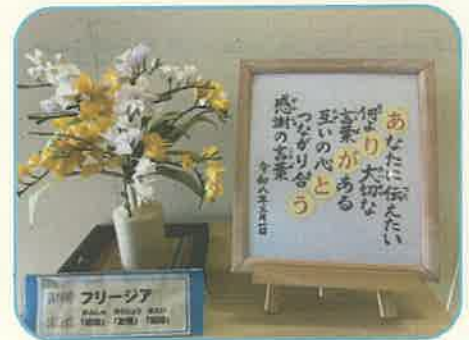 あなたに伝えたい
何より大切な
言葉がある
互いの心と
つながり合う
感謝の言葉
令和八年三月一日
フリージア